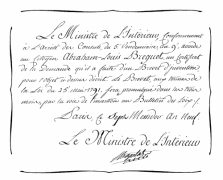 Le Ministre de l'Intérieur Conformément
à l'Arrêté des Consuls du 5 Vendémiaire, An 9, accorde
au Citoyen Abraham-Louis Breguet, un Certificat
de la Demande qu'il a faite d'un Brevet d'Invention,
pour l'objet ci dessus décrit. Le Brevet, aux termes de
la Loi du 25 mai 1791, sera proclamé dans le
mois, par la voie de l'insertion au Bulletin des Lois.
Paris, le Sept Messidor An Neuf
Le Ministre de l'Intérieur